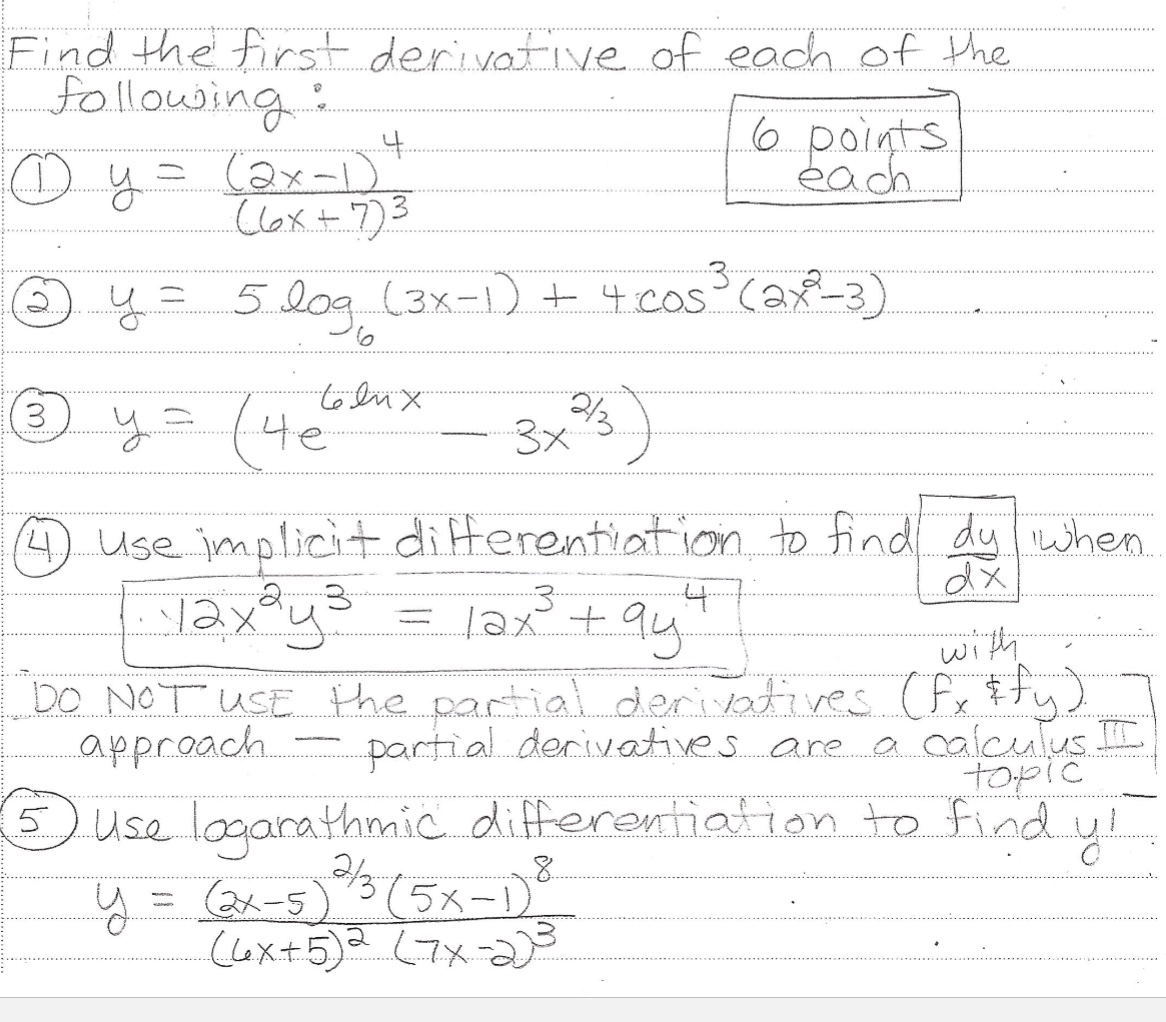 Find the first derivative of each of the
following:
6 points
each
① y = (2x-1)^4 / (6x+7)^3
② y = 5 log_6 (3x-1) + 4 cos^3 (2x^2-3)
③ y = (4e^(6lnx) - 3x^(2/3))
④ use implicit differentiation to find dy/dx when
12x^2y^3 = 12x^3 + 9y^4
with
DO NOT USE the partial derivatives (fx & fy)
approach - partial derivatives are a calculus III
topic
⑤ use logarathmic differentiation to find y'
y = (2x-5)^(2/3) (5x-1)^8 / (6x+5)^2 (7x-2)^3